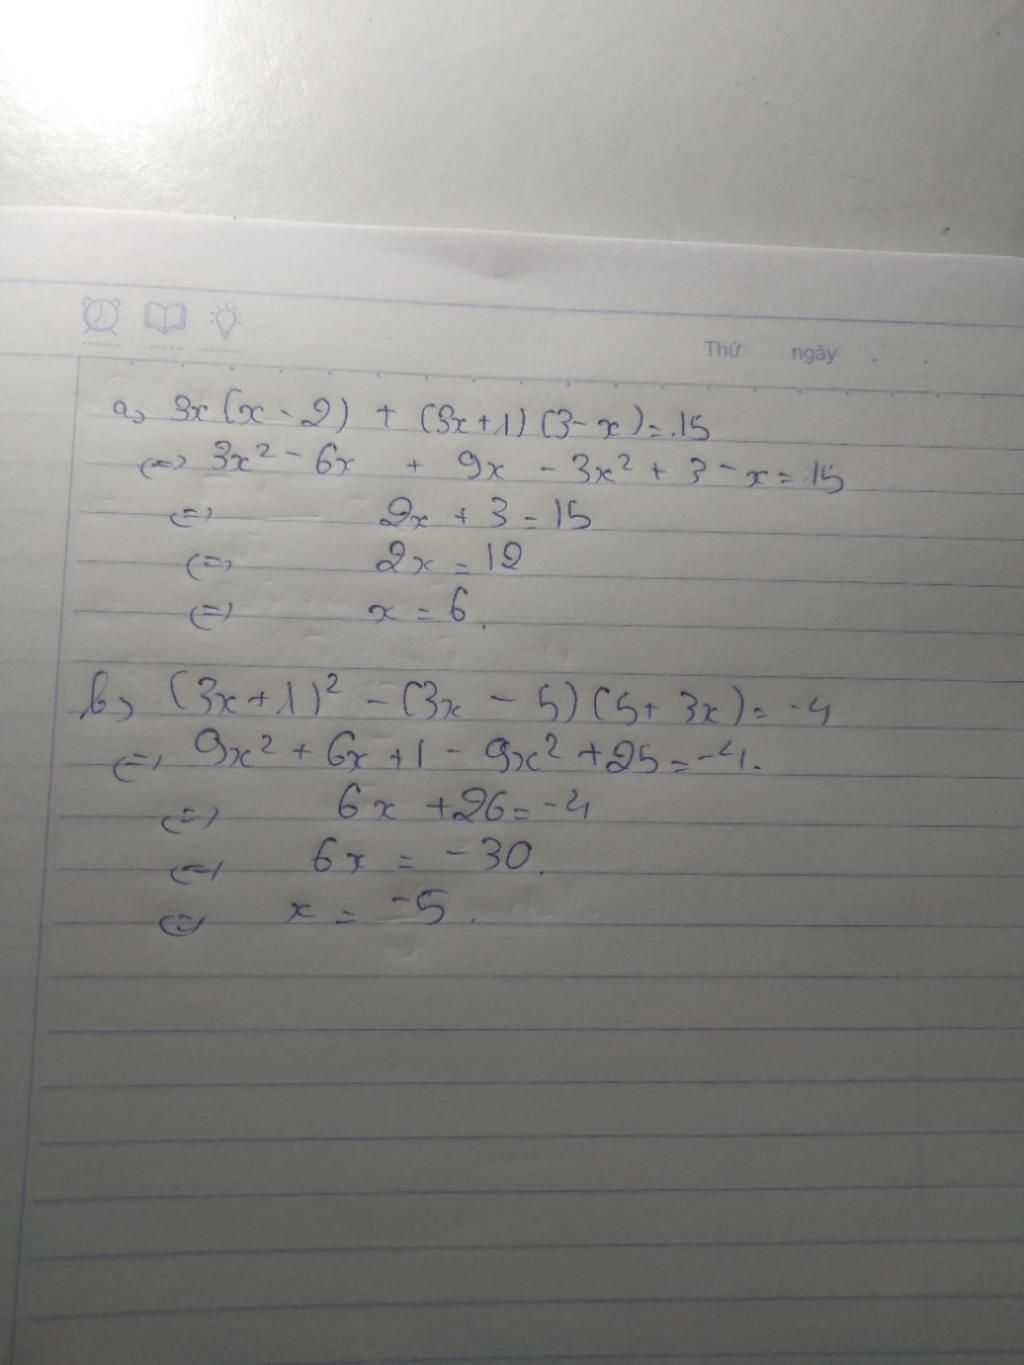 Thứ ngày
a, 3x(x - 2) + (3x+1)(3-x) = 15
<=> 3x² - 6x + 9x - 3x² + 3 - x = 15
<=> 2x + 3 = 15
<=> 2x = 12
<=> x = 6.
b, (3x+1)² - (3x - 5)(5+ 3x) = -4
<=> 9x² + 6x +1 - 9x² +25 = -4.
<=> 6x +26 = -4
<=> 6x = -30.
<=> x = -5.